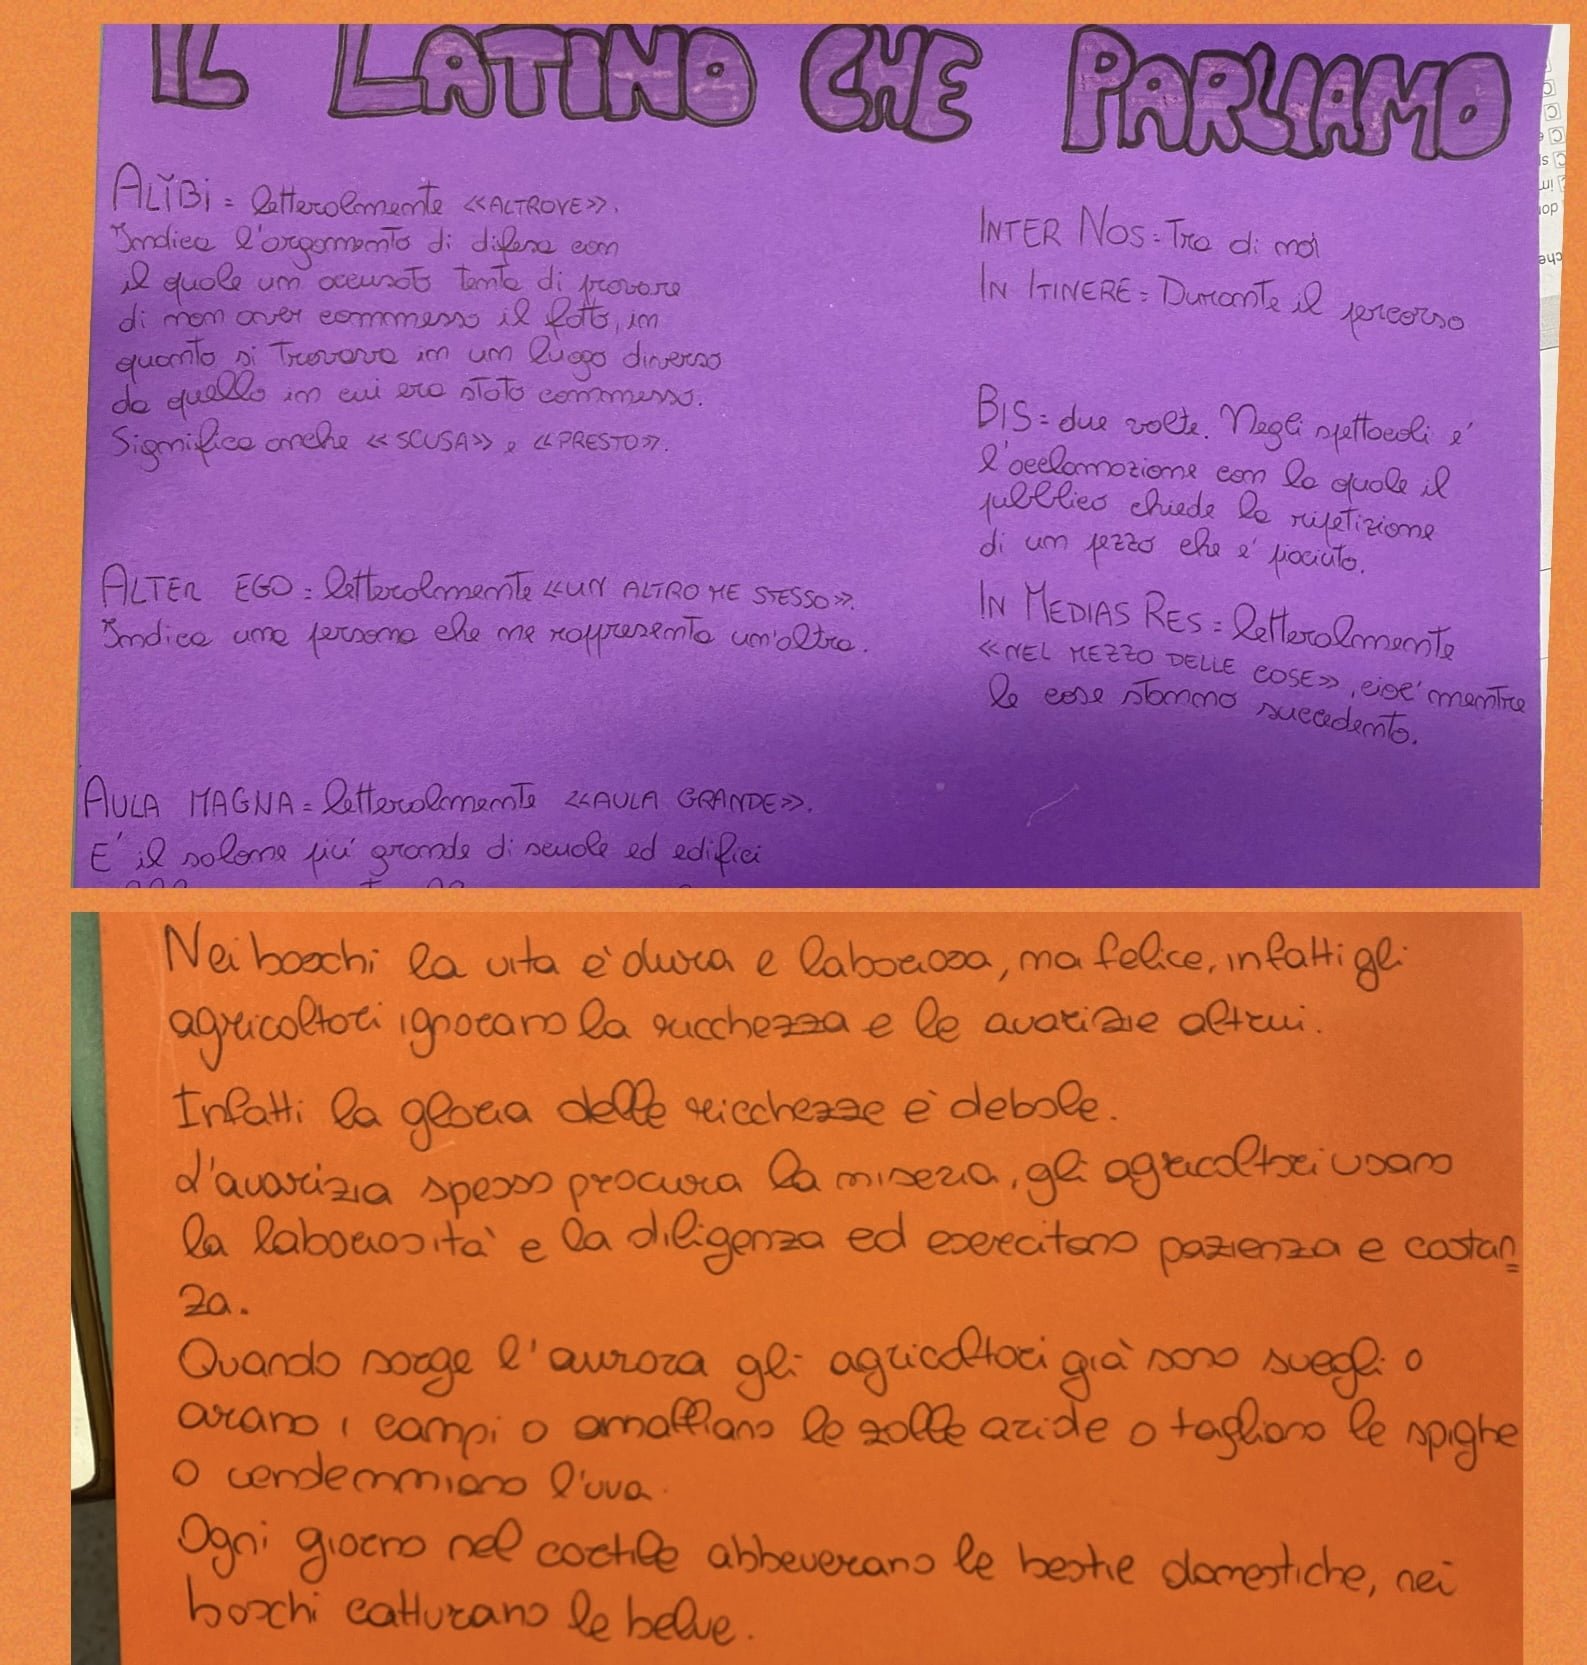 IL LATINO CHE PARLIAMO
ALĬBI = letteralmente «ALTROVE».
Indica l'argomento di difesa con
il quale un accusato tenta di provare
di non aver commesso il fatto, in
quanto si trovava in un luogo diverso
da quello in cui era stato commesso.
Significa anche «SCUSA» e «PRESTO».
ALTER EGO = letteralmente «UN ALTRO ME STESSO».
Indica una persona che ne rappresenta un'altra.
AULA MAGNA = letteralmente «AULA GRANDE».
E' il salone piu' grande di scuole ed edifici
INTER NOS = Tra di noi
IN ITINERE = Durante il percorso
BIS = due volte. Negli spettacoli e'
l'acclamazione con la quale il
pubblico chiede la ripetizione
di un pezzo che e' piaciuto.
IN MEDIAS RES = letteralmente
«NEL MEZZO DELLE COSE», cioe' mentre
le cose stanno succedento.
Nei boschi la vita è dura e laboriosa, ma felice, infatti gli
agricoltori ignorano la ricchezza e le avarizie altrui.
Infatti la gloria delle ricchezze è debole.
L'avarizia spesso procura la miseria, gli agricoltori usano
la laboriosità e la diligenza ed esercitano pazienza e costan=
za.
Quando sorge l'aurora gli agricoltori già sono svegli o
arano i campi o annaffiano le zolle aride o tagliano le spighe
o vendemmiano l'uva.
Ogni giorno nel cortile abbeverano le bestie domestiche, nei
boschi catturano le belve.